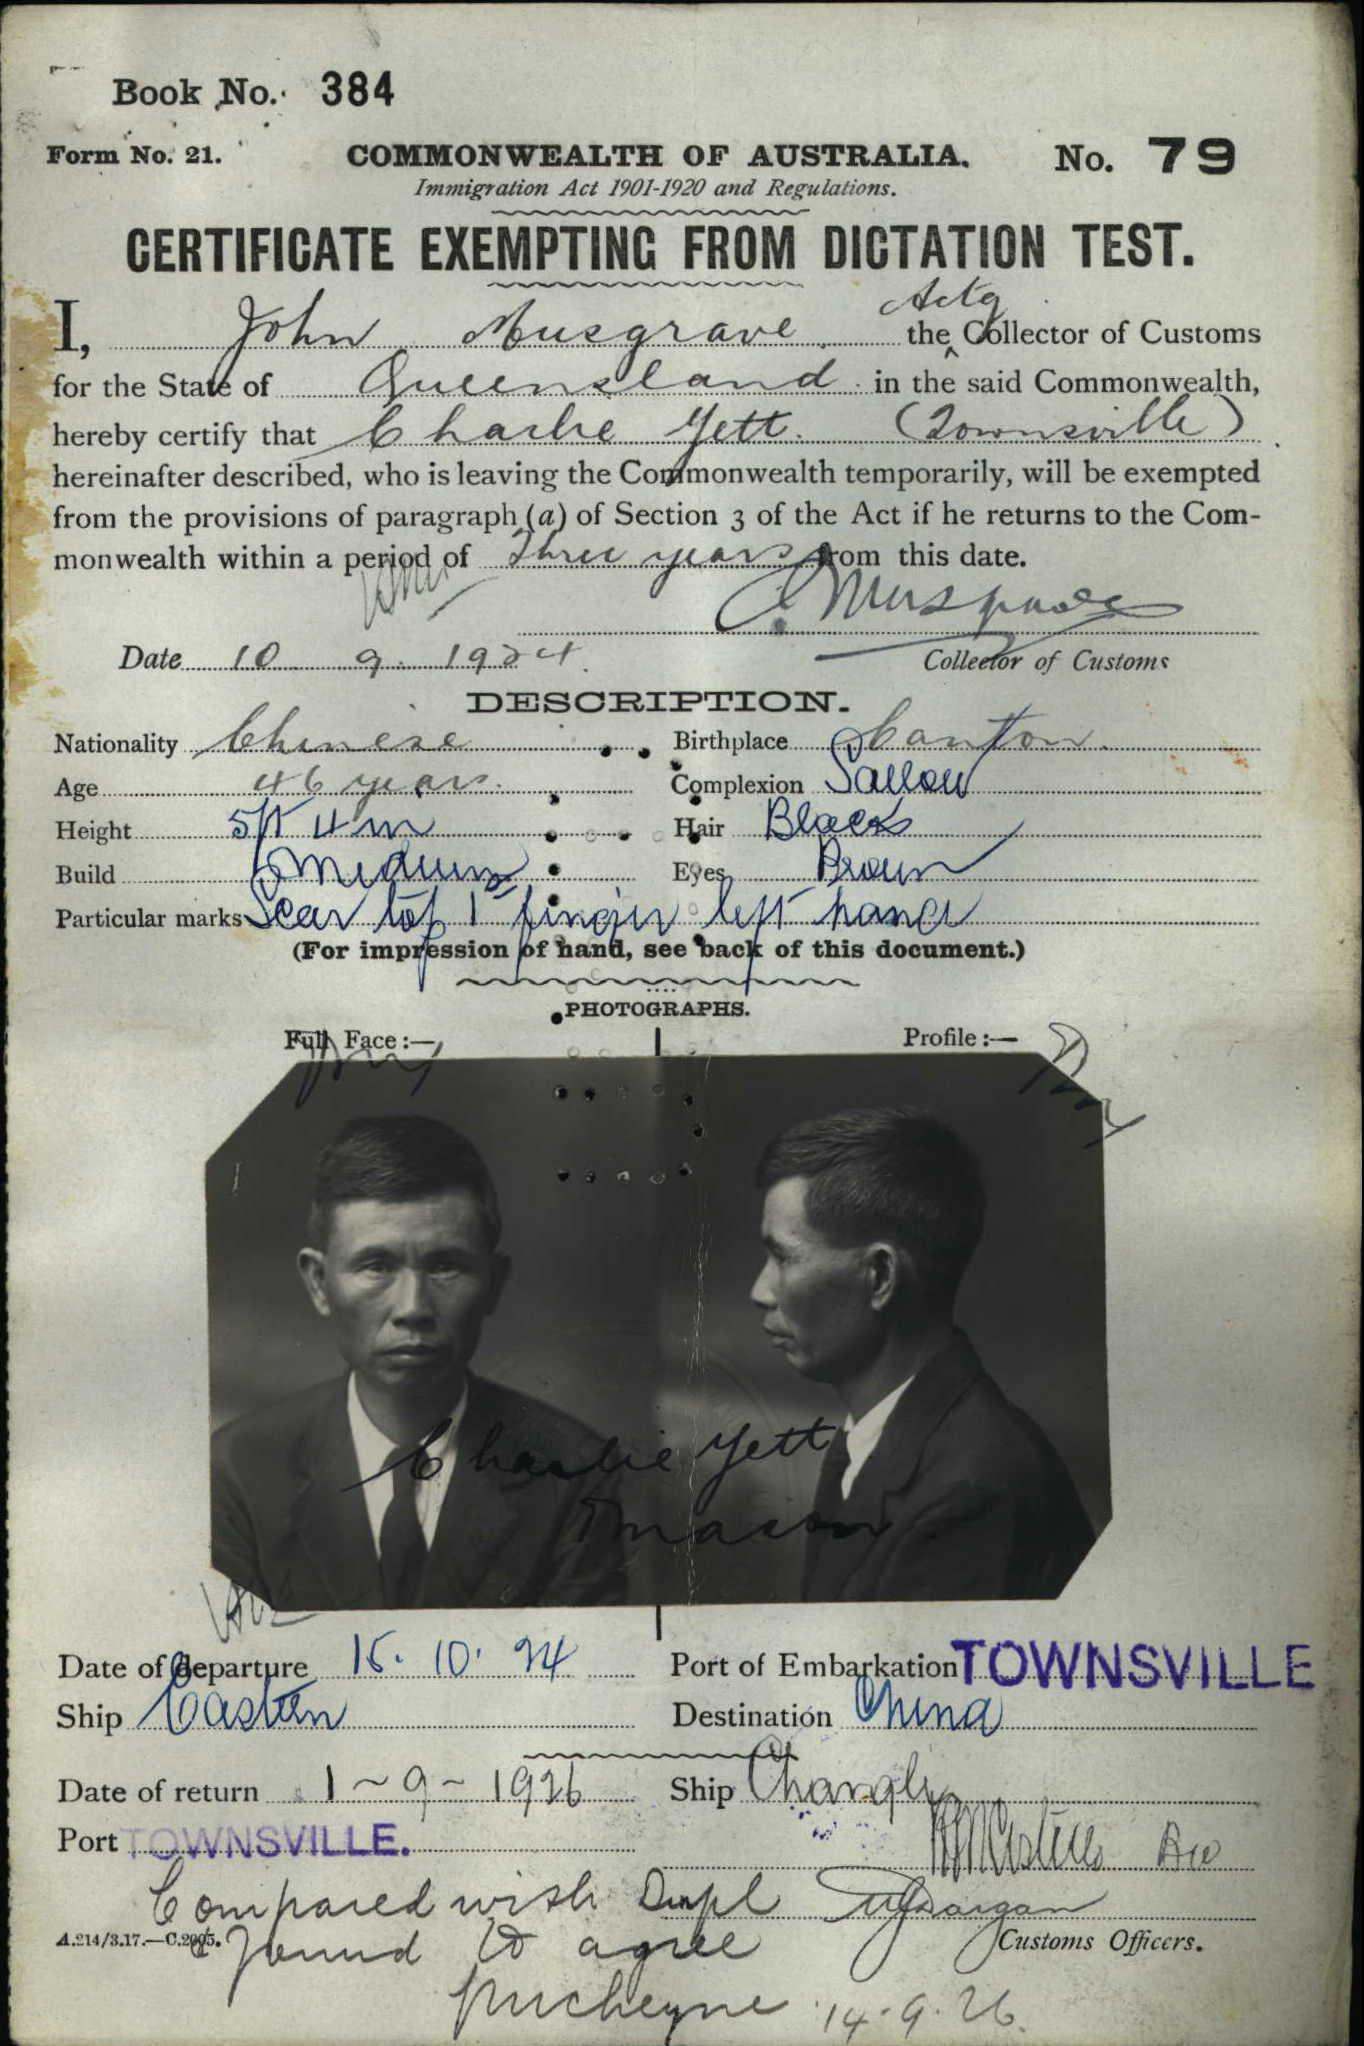 Book No. 384
Form No. 21. COMMONWEALTH OF AUSTRALIA. No. 79
Immigration Act 1901-1920 and Regulations.
CERTIFICATE EXEMPTING FROM DICTATION TEST.
Actg
I, John Musgrave the Collector of Customs
for the State of Queensland in the said Commonwealth,
hereby certify that Charlie Yett. (Townsville)
hereinafter described, who is leaving the Commonwealth temporarily, will be exempted
from the provisions of paragraph (a) of Section 3 of the Act if he returns to the Com-
monwealth within a period of Three years from this date.
Musgrave
Date 10. 9. 1924. Collector of Customs
DESCRIPTION.
Nationality Chinese Birthplace Canton.
Age 46 years. Complexion Sallow
Height 5ft 4 in Hair Black
Build Medium Eyes Brown
Particular marks Scar top 1st finger left hand
(For impression of hand, see back of this document.)
PHOTOGRAPHS.
Full Face:— Profile:—
Charlie Yett
Date of departure 15. 10. 24 Port of Embarkation TOWNSVILLE
Ship Eastern Destination China
Date of return 1-9-1926 Ship Changte
Port TOWNSVILLE.
Compared with Dupl
A.214/3.17.—C.2005. & found to agree Customs Officers.
14.9.26.